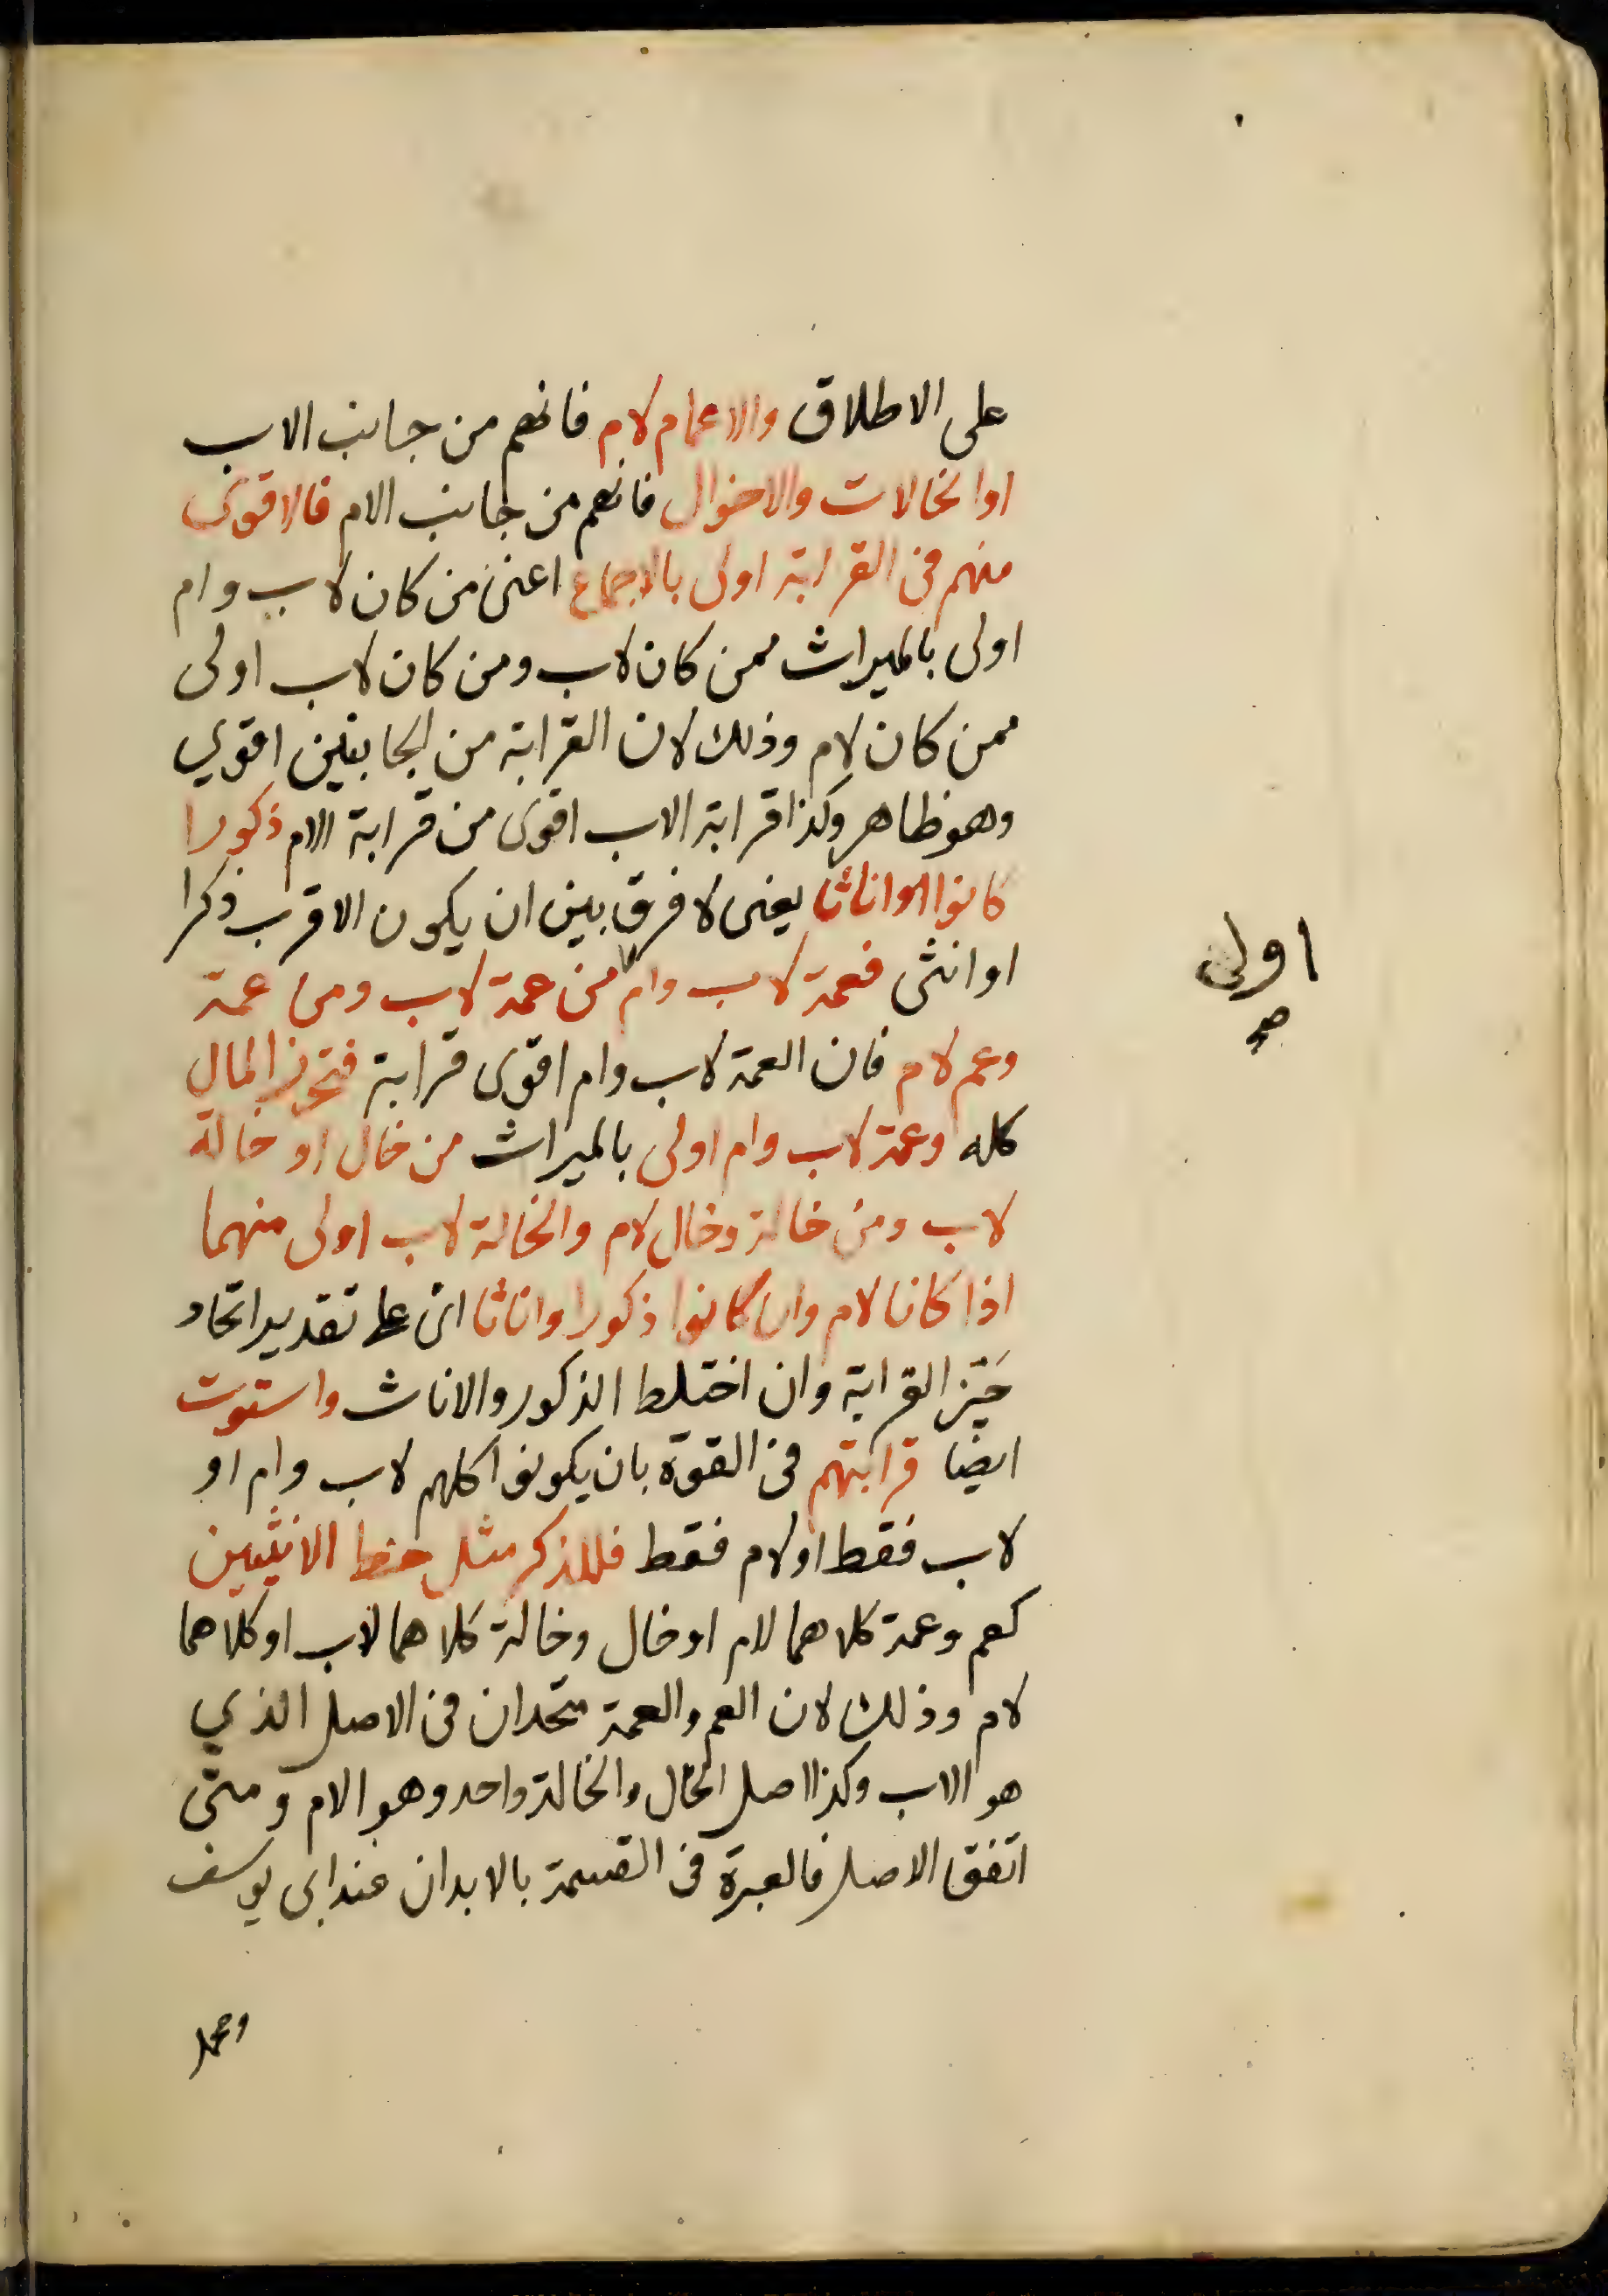 على الاطلاق والاعمام لام فانهم من جانب الاب
اوالخالات والاخوال فانهم من جانب الام فالاقوى
منهم فى القرابة اولى بالاجماع اعنى من كان لاب وام
اولى بالميراث ممن كان لاب ومن كان لاب اولى
ممن كان لام وذلك لان القرابة من الجانبين اقوي
وهو ظاهر وكذا قرابة الاب اقوى من قرابة الام ذكورا
كانوا او اناثا يعنى لا فرق بين ان يكون الاقرب ذكرا
او انثى فعمة لاب وام من عمة لاب ومن عمة
اولى
صح
وعم لام فان العمة لاب وام اقوى قرابة فتحرز المال
كله وعمة لاب وام اولى بالميراث من خال او خالة
لاب ومن خالة وخال لام والخالة لاب اولى منهما
اذا كانا لام وان كانوا ذكورا واناثا اى على تقدير اتحاد
حَيّز القرابة وان اختلط الذكور والاناث واستوت
ايضا قرابتهم فى القوّة بان يكونوا كلهم لاب وام او
لاب فقط او لام فقط فللذكر مثل حظ الانثيين
كعم وعمة كلاهما لام او خال وخالة كلاهما لاب او كلاهما
لام وذلك لان العم والعمة متحدان فى الاصل الذي
هو الاب وكذا اصل الخال والخالة واحد وهو الام ومتى
اتفق الاصل فالعبرة فى القسمة بالابدان عند ابى يوسف
ومحمد